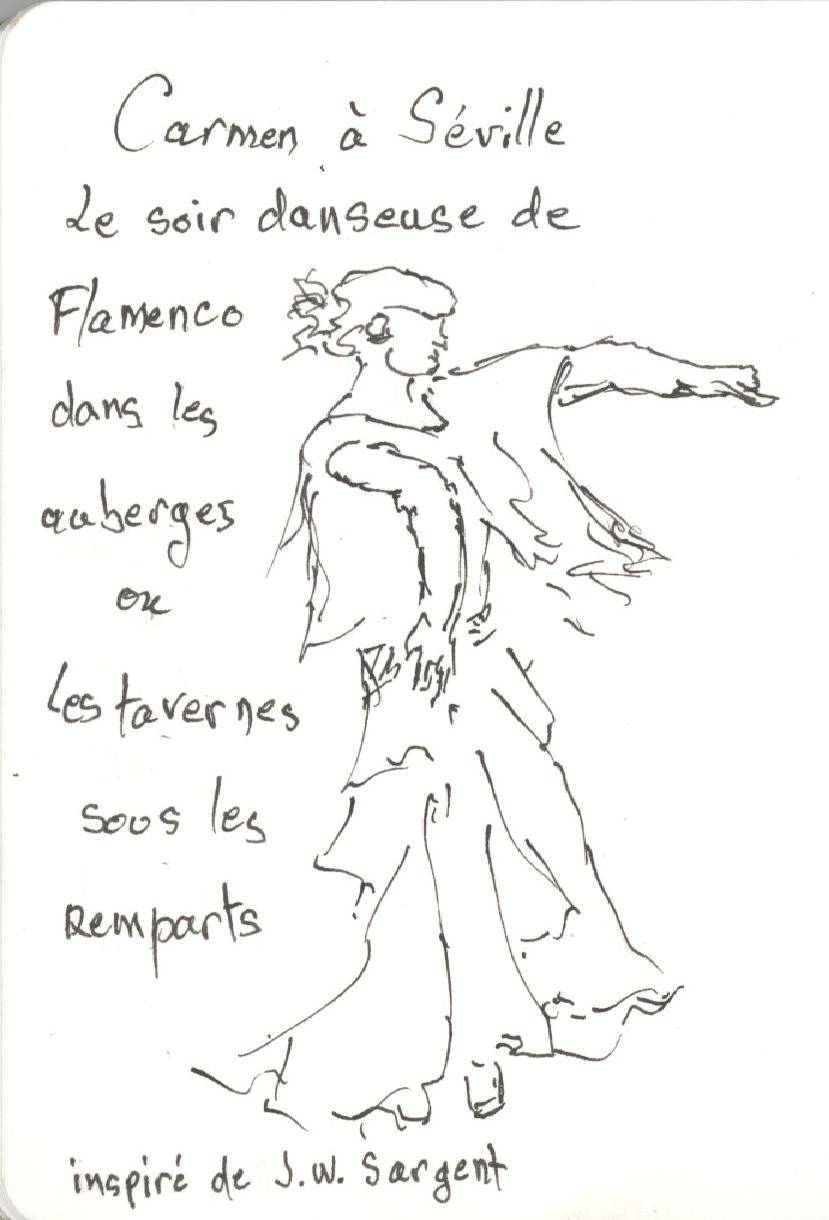 Carmen à Séville
Le soir danseuse de
Flamenco
dans les
auberges
ou
les tavernes
sous les
Remparts
inspiré de J.W. Sargent